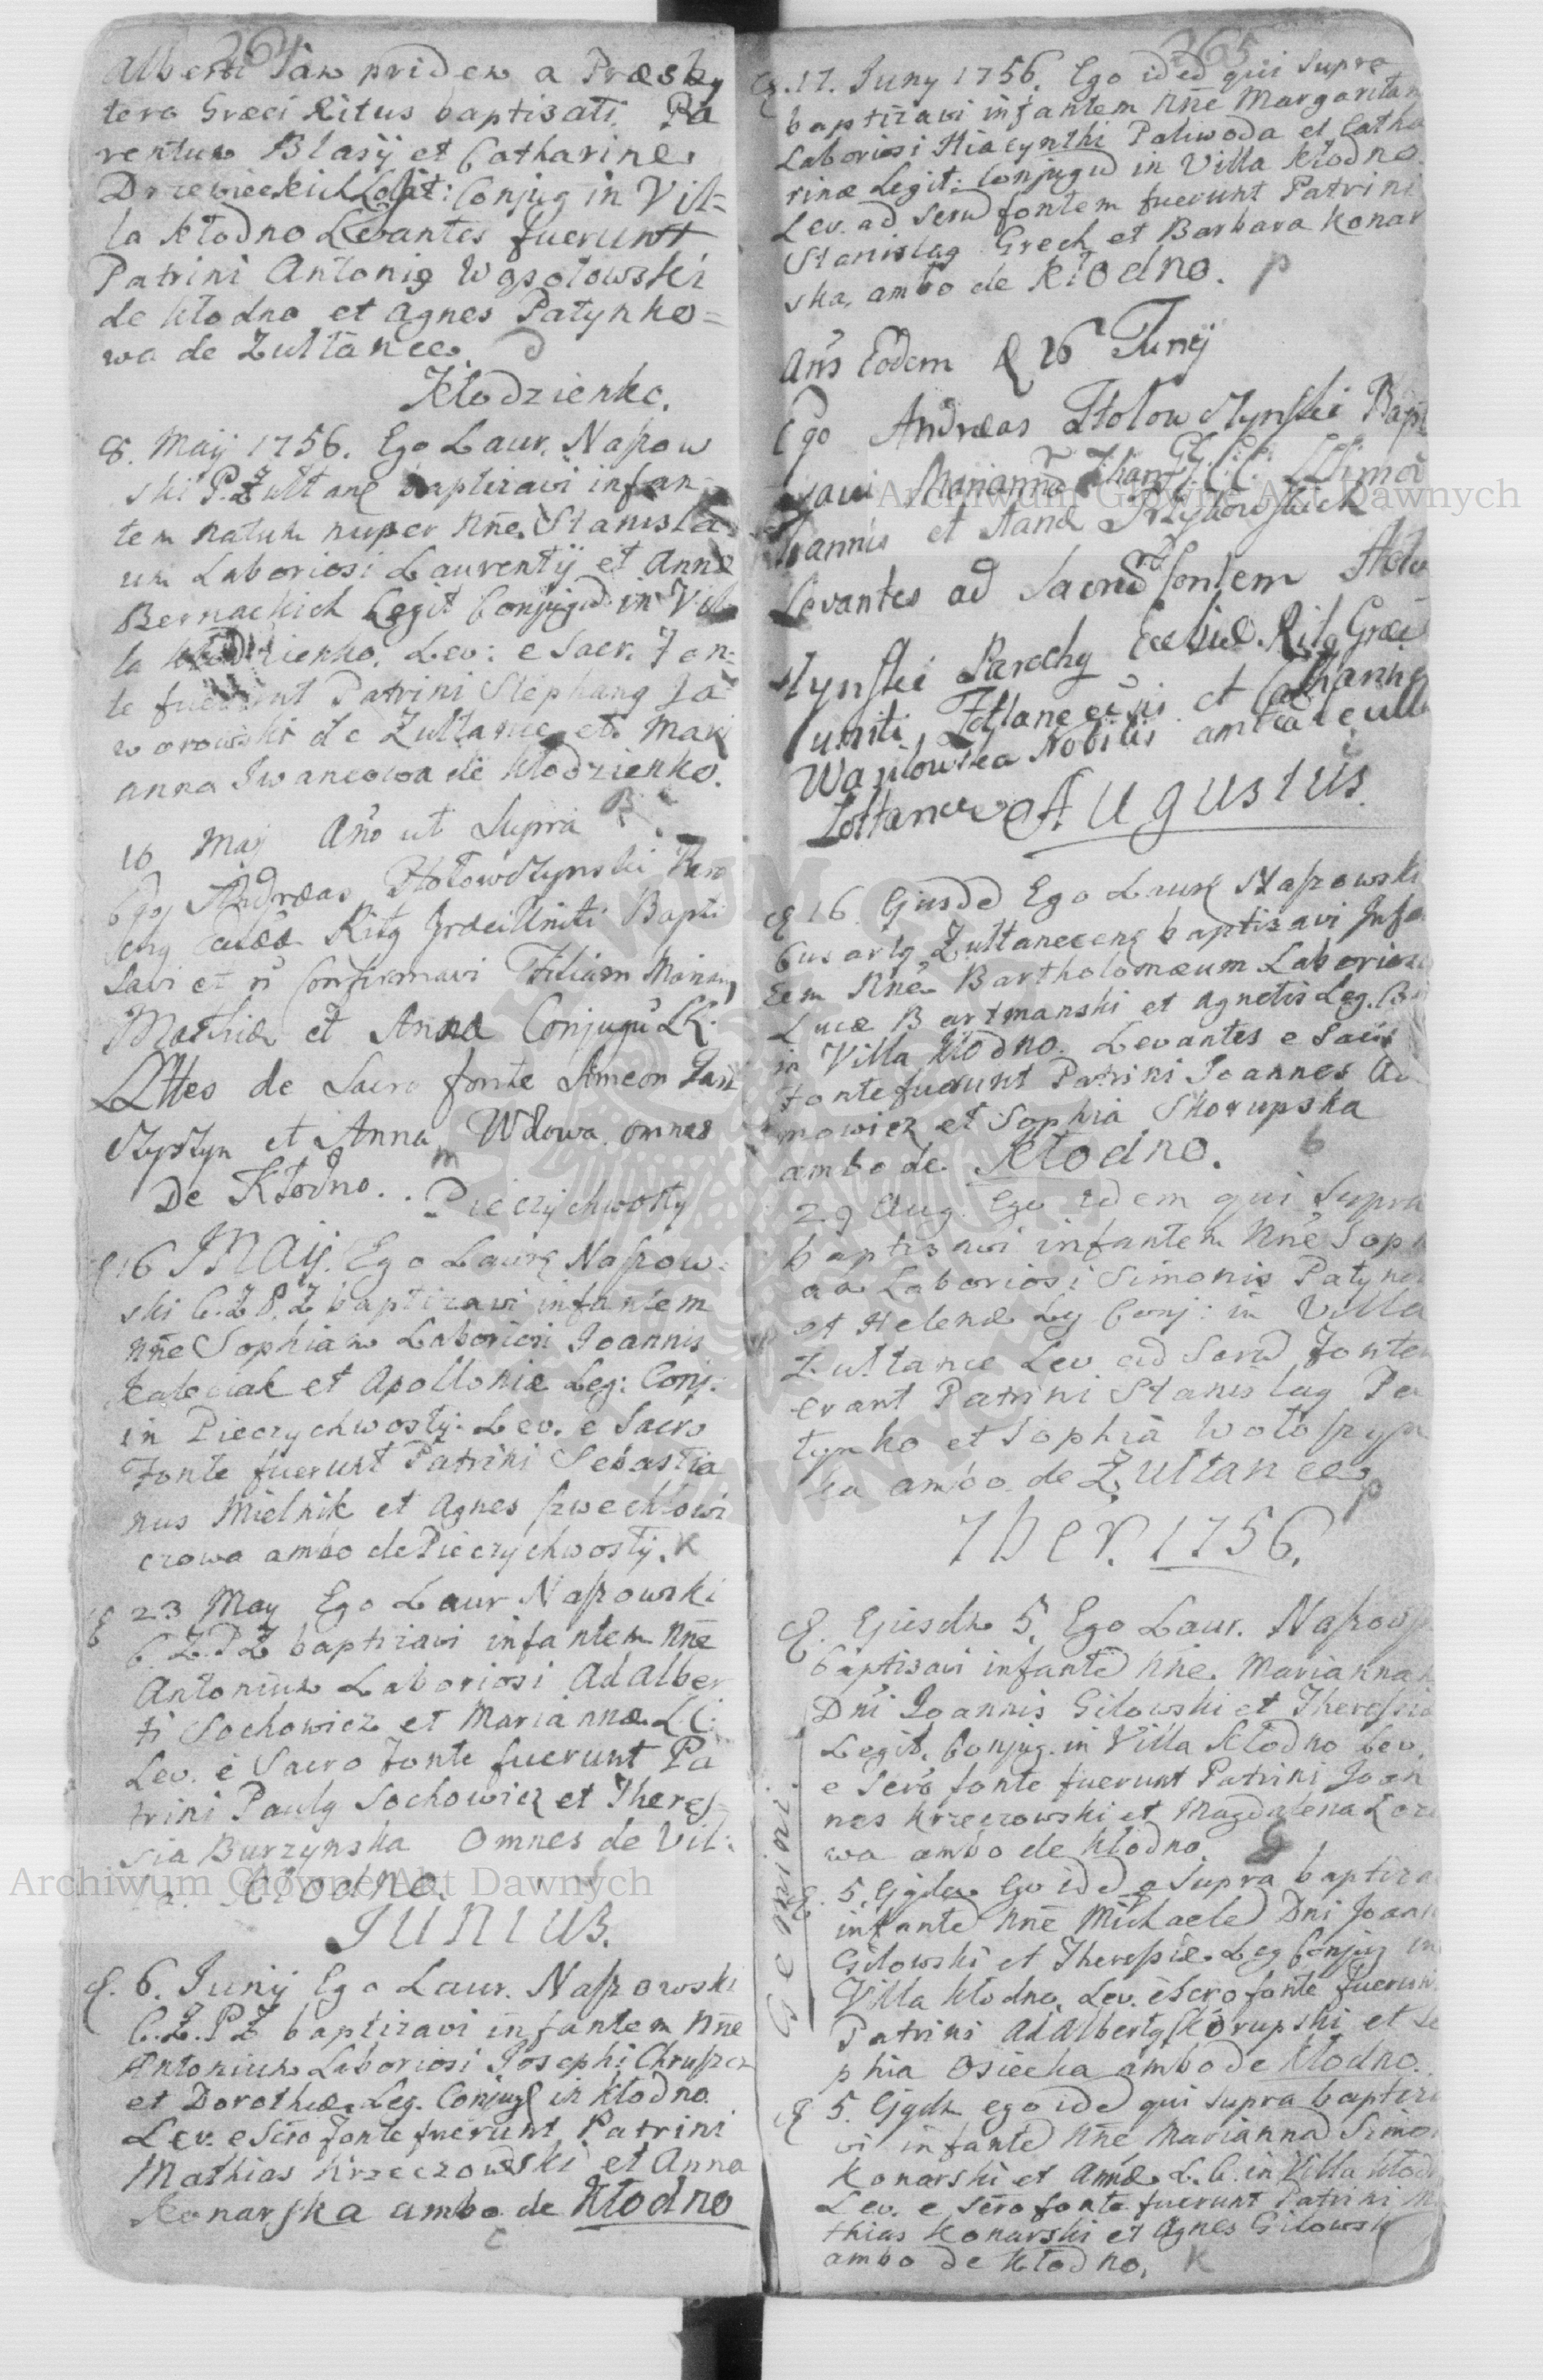 264
Alberti Jam pridem a Præsby
tero Græci Ritus baptisati. Pa
rentum Blasij et Catharinæ
Drzewieckich Legit: Conjug in Vil=
la Kłodno Levantes fuerunt
Patrini Antonig Wąsołowski
de Kłodno et Agnes Patynko=
wa de Zułtance.
Kłodzienko.
8. Maij 1756. Ego Laur. Naszow
ski P. Zułtanc baptizavi infan=
tem natum nuper Nñe. Stanisla
um Laboriosi Laurentij et Annæ
Bernackich Legit Conjugũ in Vil
la Kłodzienko. Lev: e Sacr. Fon=
te fuerunt Patrini Stephang Ja
worowski de Zultance et Mari
anna Iwancowa de Kłodzienko.
16 Maij Año ut Supra
Ego Andræas Hołowczynski Paro
chg Ritg Græci Uniti Bapti
savi et Confirmavi Filiam
Mathiæ et Annæ Conjugũ LL.
de Sacro fonte Simeon
et Anna Wdowa omnes
De Kłodno.. Pieczychwosty
16 Maij. Ego Laur Naszow=
ski C.Z P.Z baptizavi infantem
Nñe Sophiam Laboriosi Joannis
et Apolloniæ Leg: Conj:
in Pieczychwosty. Lev. e Sacro
Fonte fuerunt Patrini Sebastia
nus Mielnik et Agnes
czowa ambo de Pieczychwosty. K
23 May Ego Laur Naszowski
C.Z.P.Z baptizavi infantem Nñe
Antonium Laboriosi Adalber
ti Sochowicz et Mariannæ L.C:
Lev. e Sacro Fonte fuerunt Pa
trini Paulg Sochowicz et Theres
sia Burzynska Omnes de Vil:
la. Kłodno.
JUNIUS.
6. Junij Ego Laur. Naszowski
C.Z.P.Z baptizavi infantem Nñe
Antonium Laboriosi Josephi Chruszcz
et Dorotheæ Leg. Conjug in Kłodno.
Lev. e Scro fonte fuerunt Patrini
Mathias Krzeczowski et Anna
Konarska ambo de Kłodno
C
265
17. Juny 1756. Ego idẽ qui supra
baptizavi infantem Nñe Margaritam
Laboriosi Hiacynthi Paliwoda et Catha
rinæ Legit: Conjugũ in Villa Kłodno.
Lev. ad Scrũ fontem fuerunt Patrini
Stanislag Grech et Barbara Konar
ska, ambo de Kłodno. p
Eodem 26 Junij
Ego Andræas Hołowczynski Bapt
savi Mariannã
Joannis et
Levantes ad Sacrũ fontem Hoło
czynski Parochg Ritg Græci
uniti et
Nobilis
Augustus.
16 Ejusdẽ Ego Laur Naszowski
Zułtanecens baptisavi Infan
tem Nñe Bartholomæum Laboriosi
Lucæ Bartmanski et Agnetis Leg. Con
in Villa Kłodno. Levantes e Sacro
Fonte fuerunt Patrini Joannes Ada
mowicz et Sophia Skorupska
ambo de Kłodno. b
29 Aug. Ego idem qui Supra
baptisavi infantem Nñe Sophi
am Laboriosi Simonis Patynko
et Helenæ Leg Conj: in Villa
Zułtance Lev ad Scrũ Fontem
erant Patrini Stanislag Pa
tynko et Sophia
ka ambo de Zułtance. p
7ber. 1756.
Ejusdem 5. Ego Laur. Naszows
baptisavi infantẽ Nñe Mariannam
Dñi Joannis Gilowski et Theressiæ
Legit. Conjug. in Villa Kłodno Lev.
e Scro fonte fuerunt Patrini Joan
nes Krzeczowski et Magdalena
wa ambo de Kłodno. G
Gemini.
5. Ejgdem Ego idẽ q Supra baptiza
infantẽ Nñe Michaelẽ Dñi Joann
Gilowski et Theressiæ Leg Conjug in
Villa Kłodno. Lev. e Scro fonte fuerun
Patrini Adalbertg Skorupski et So
phia Osiecka ambo de Kłodno.
5. Ejgdem ego idẽ qui supra baptiza
vi infantẽ Nñe Mariannã Simon
Konarski et Annæ L.C. in Villa Kłodn
Lev. e Scro fonte fuerunt Patrini Ma
thias Konarski et Agnes Gilowsk
ambo de Kłodno. K
Archiwum Główne Akt Dawnych
Archiwum Główne Akt Dawnych